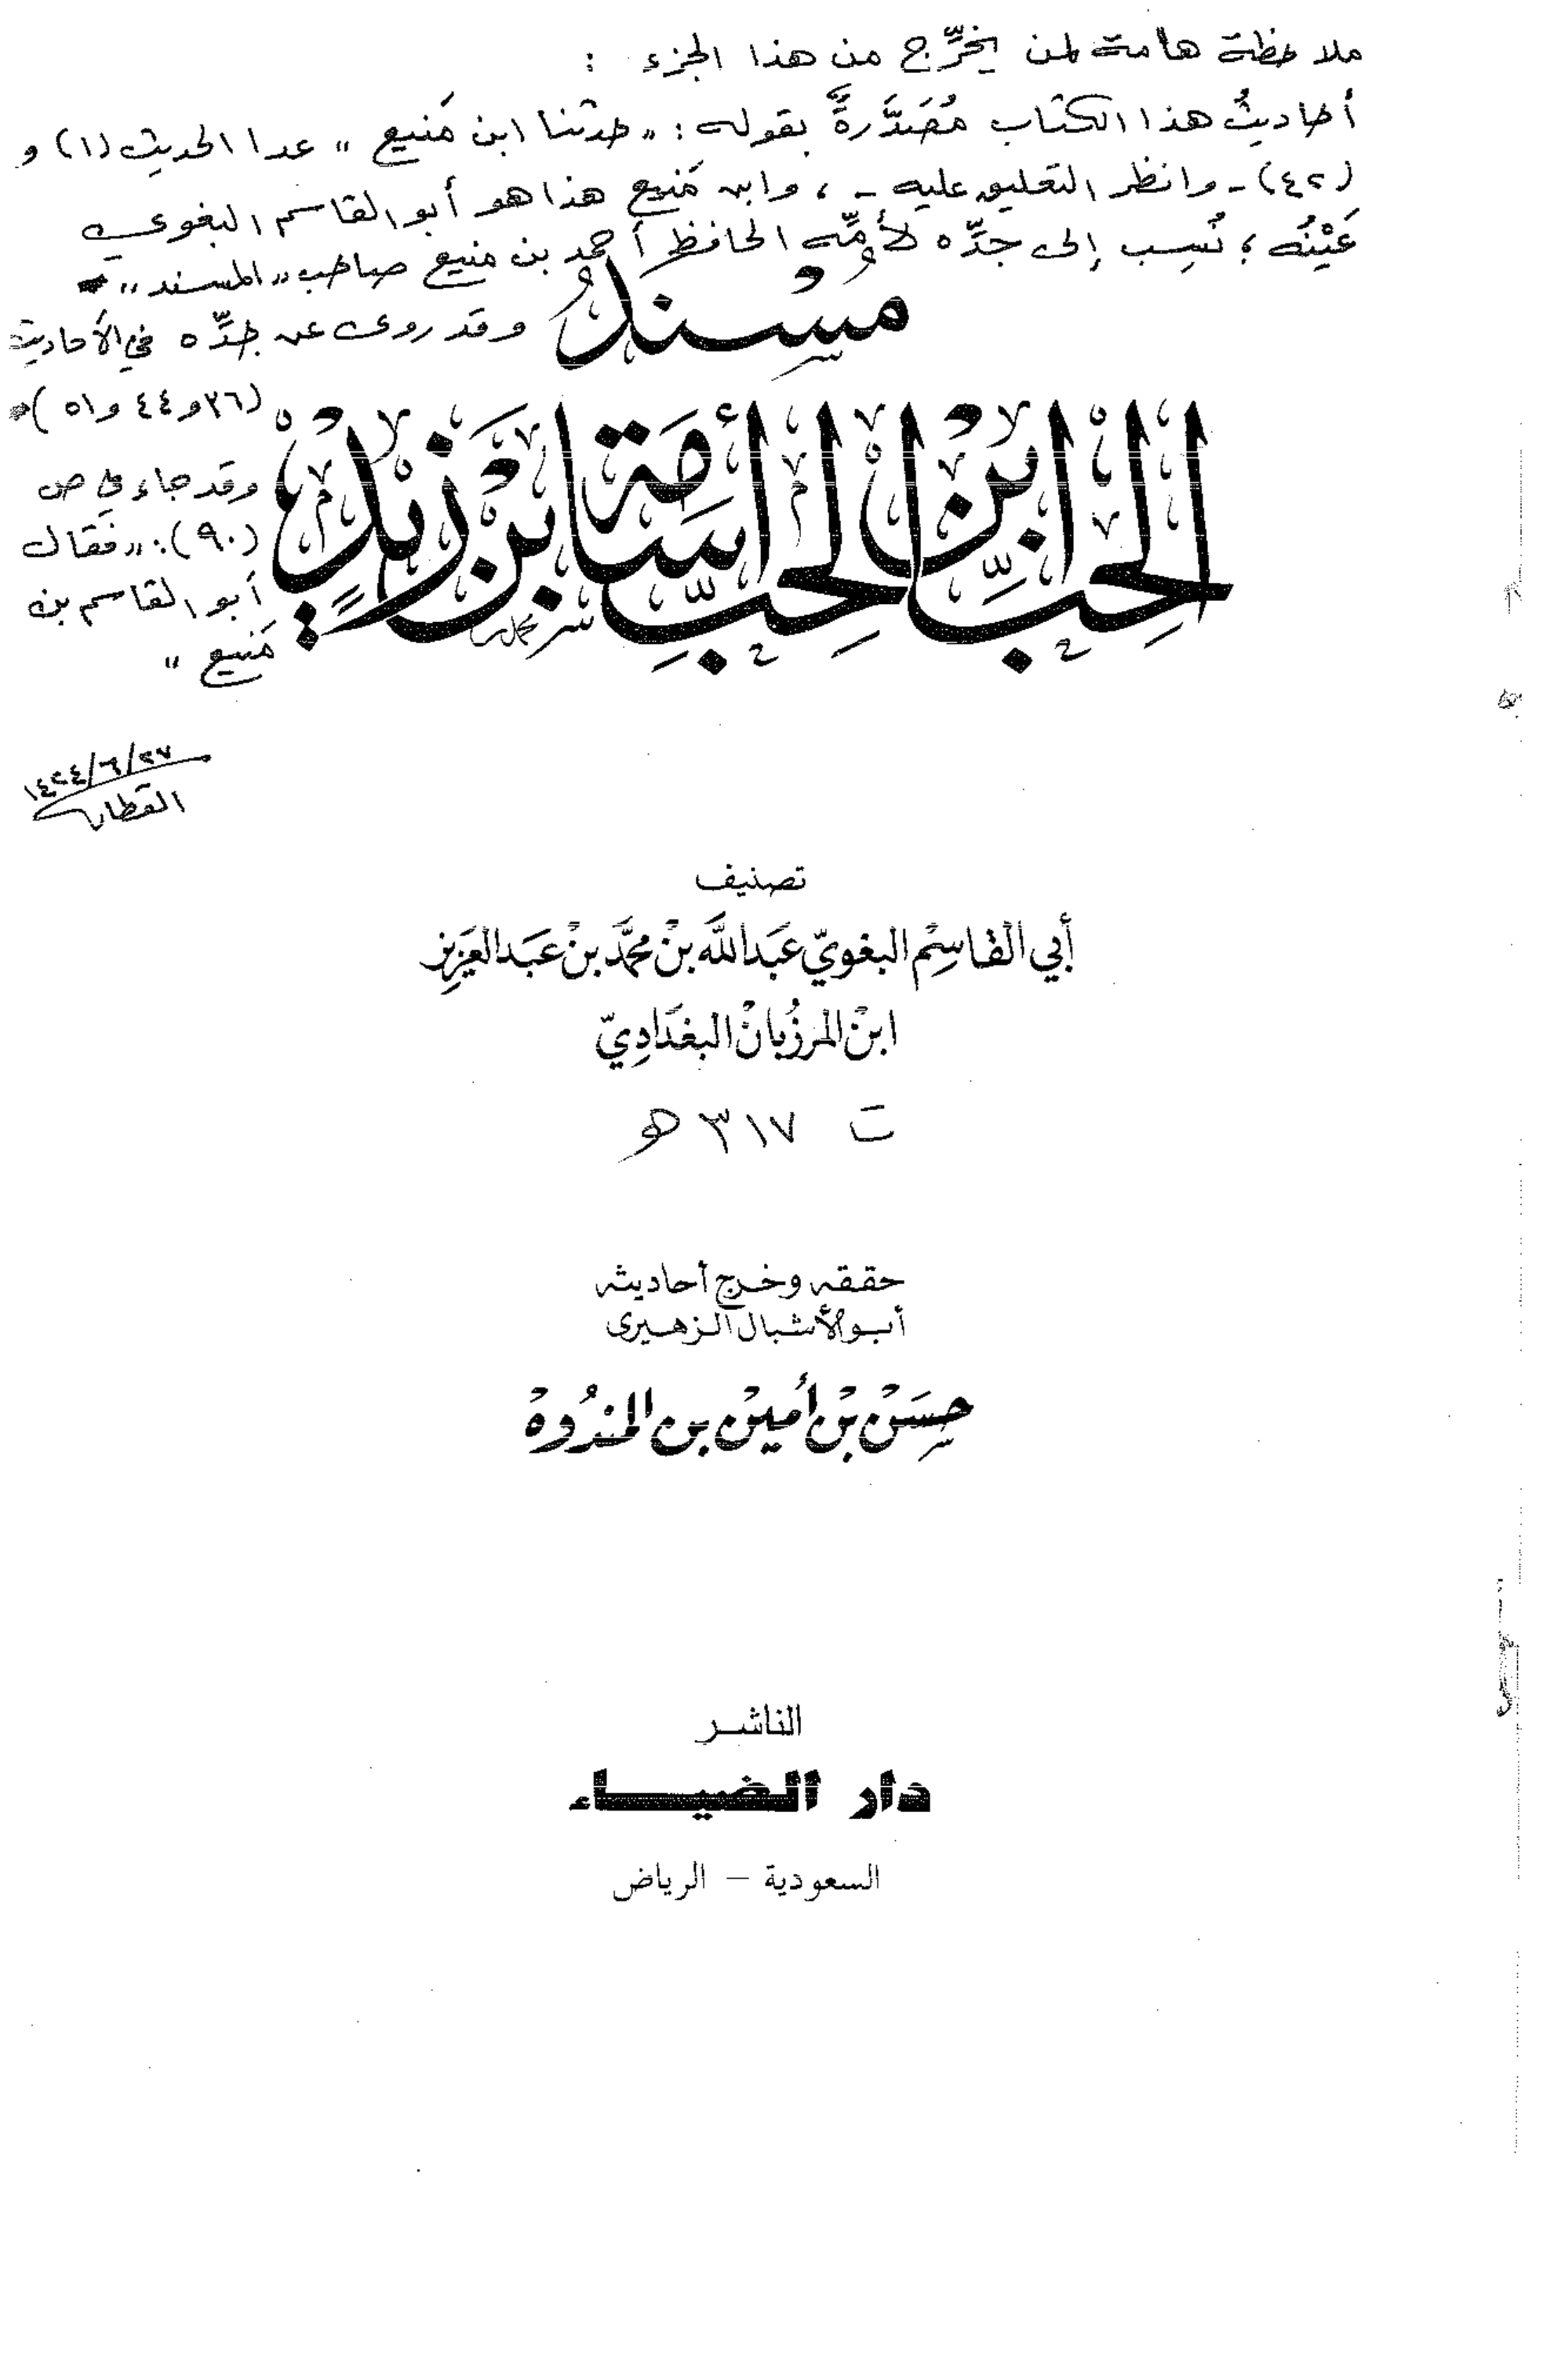 ملاحظة هامة لمن يخرِّج من هذا الجزء :
أحاديثُ هذا الكتاب مُصَدَّرةً بقوله : „ حدثنا ابن مَنيع „ عدا الحديث (١) و
(٤٢) - وانظر التعليق عليه - ، وابن مَنيع هذا هو أبو القاسم البغوي
عَيْنُه ؛ نُسِب إلى جدِّه لأُمِّه الحافظ أحمد بن منيع صاحب „ المسند „
وقد روى عن جدِّه في الأحاديث
(٣٦ و ٤٤ و ٥١)
وقد جاء في ص
(٩٠) : „ فقال
أبو القاسم بن
مَنيع „
١٤٢٤/٦/٢٧
القطان
مسند
الحِبّ ابن الحِبّ أسامة بن زيدٍ
تصنيف
أبي القاسِم البغويّ عَبدالله بنْ محمَّد بنْ عَبد العَزِيز
ابنْ المرزُبانْ البغدَادِيّ
ت ٣١٧ هـ
حققه وخرج أحاديثه
أبو الأشبال الزهيرى
حسَن بنْ أمين بن المندُوهْ
الناشر
دار الضياء
السعودية – الرياض